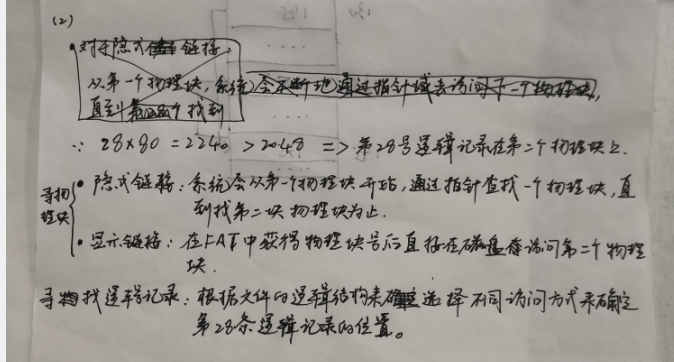 (2)
对于隐式链接,
从第一个物理块,系统会不断地通过指针域去访问下一个物理块,
直到 找到
∵ 28×80=2240>2048 => 第28号逻辑记录在第二个物理块上.
寻物理块
• 隐式链接:系统会从第一个物理块开始,通过指针查找一个物理块,直
到找第二块物理块为止.
• 显示链接:在FAT中获得物理块号后直接在磁盘访问第二个物理
块.
寻找逻辑记录:根据文件的逻辑结构来选择不同访问方式来确定
第28条逻辑记录的位置。